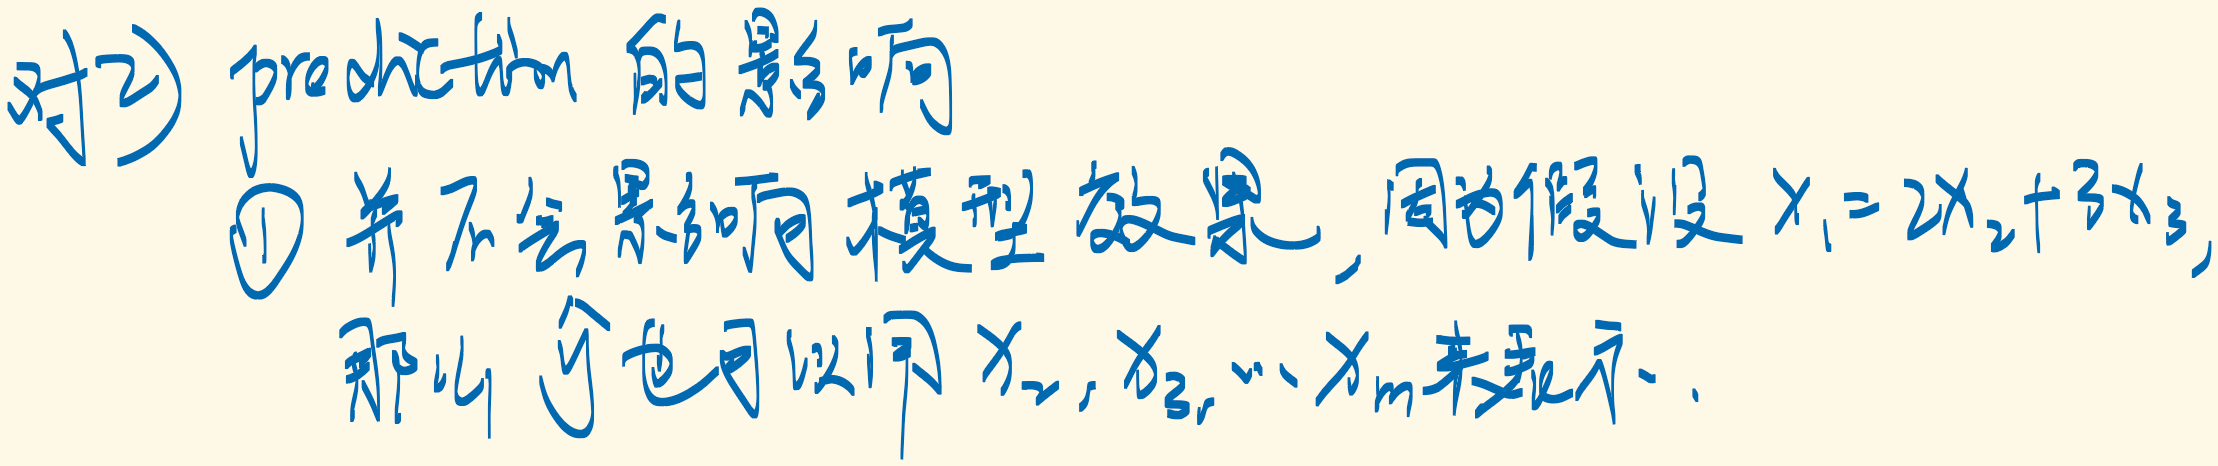 对2) prediction 的影响
① 并不会影响模型效果, 因为假设 x₁ = 2x₂ + 3x₃,
那么 ŷ 也可以用 x₂, x₃, ... xₘ 来表示.